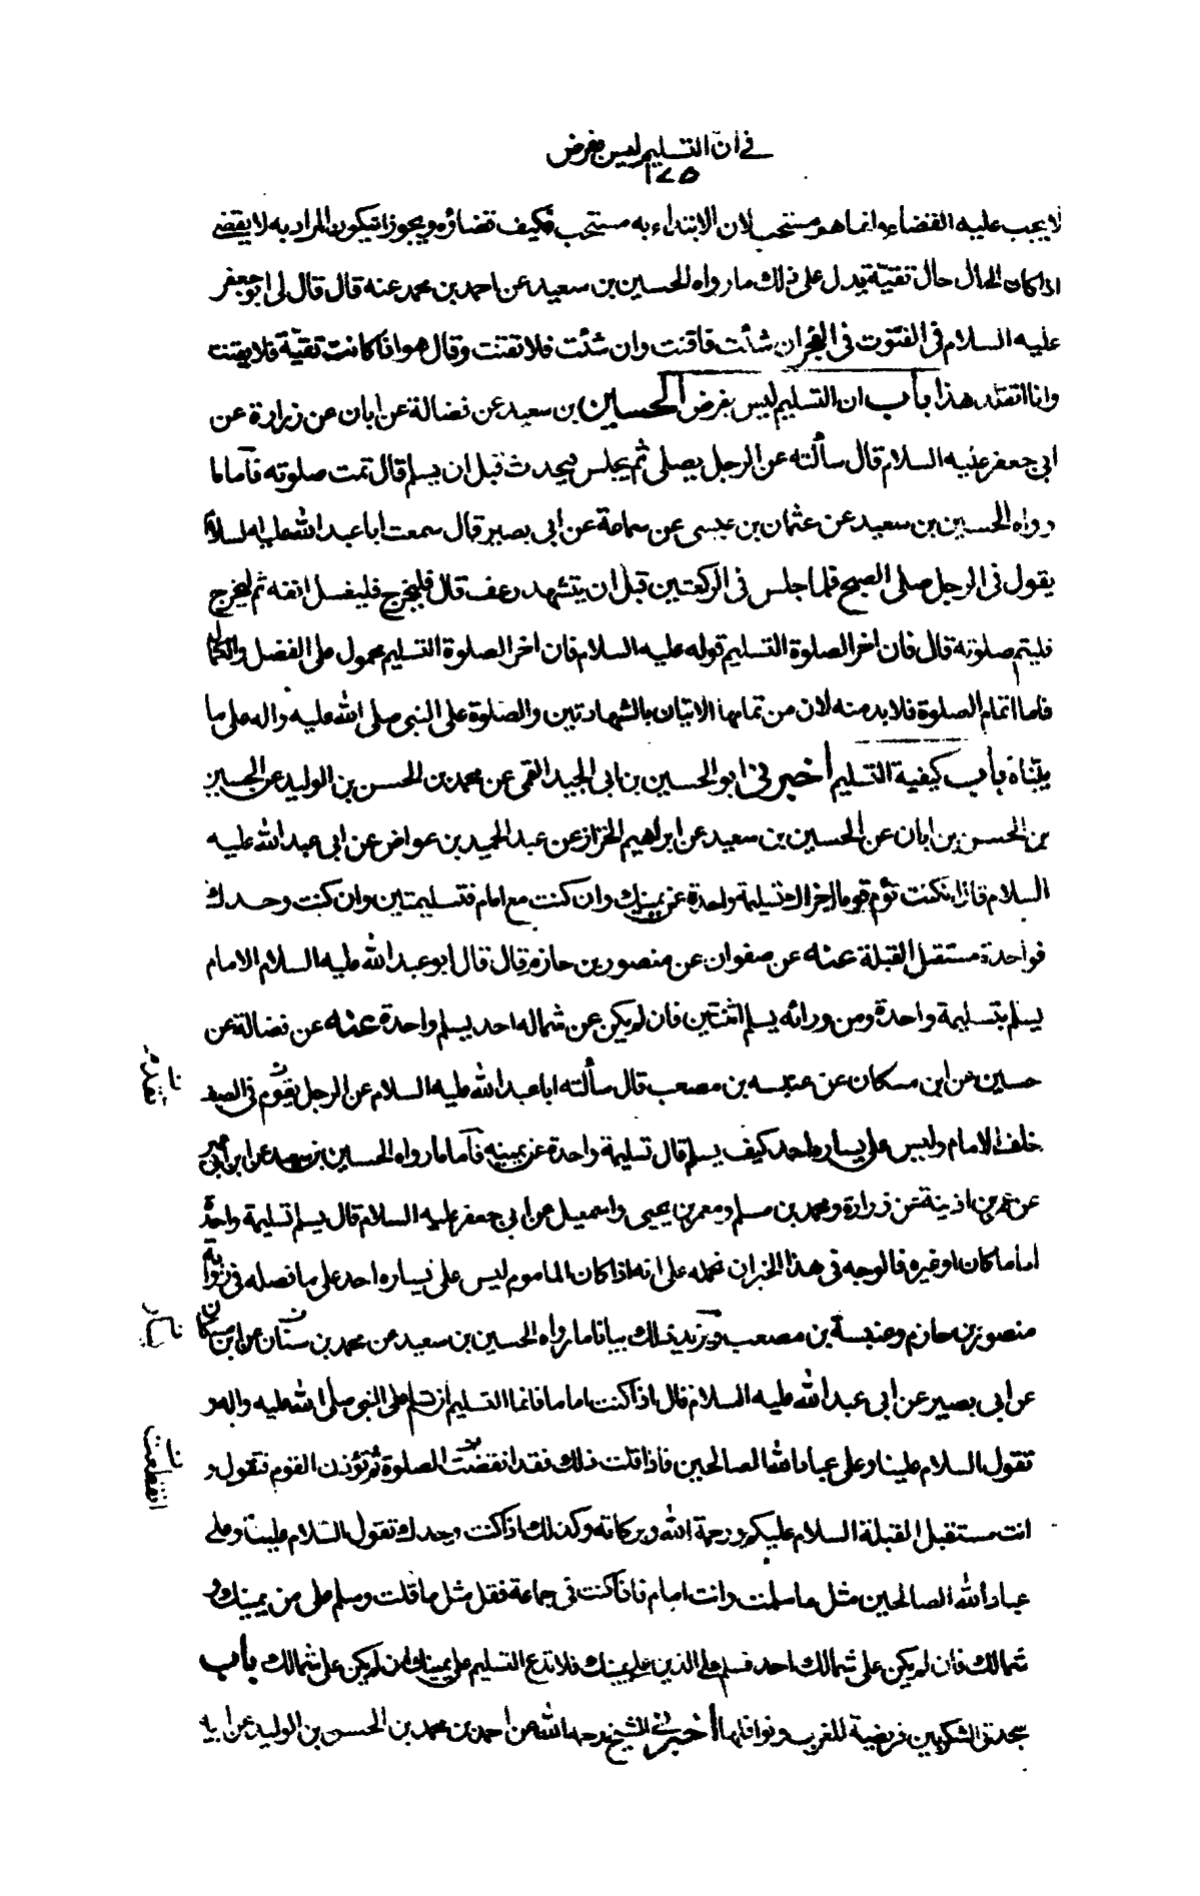 في ان التسليم ليس بفرض
١٧٥
لا يجب عليه القضاء انما هو مستحب لان الابتداء به مستحب فكيف قضاؤه ويجوز ان يكون المراد به لا يقضى
اذا كان الحال حال تقيّة يدل على ذلك ما رواه الحسين بن سعيد عن احمد بن محمد عنه قال قال لى ابو جعفر
عليه السلام فى القنوت فى الفجر ان شئت فاقنت وان شئت فلا تقنت وقال هو اذا كانت تقيّة فلا يقنت
وانا اتقلد هذا باب ان التسليم ليس بفرض الحسين بن سعيد عن فضالة عن ابان عن زرارة عن
ابى جعفر عليه السلام قال سألته عن الرجل يصلى ثم يجلس فيحدث قبل ان يسلم قال تمت صلوته فاما ما
رواه الحسين بن سعيد عن عثمان بن عيسى عن سماعة عن ابى بصير قال سمعت ابا عبد الله عليه السلام
يقول فى الرجل صلى الصبح فلما جلس فى الركعتين قبل ان يتشهد رعف قال فليخرج فليغسل انفه ثم ليخرج
فليتم صلوته قال فان اخر الصلوة التسليم قوله عليه السلام فان اخر الصلوة التسليم محمول على الفضل والكمال
فاما اتمام الصلوة فلا بد منه لان من تمامها الاتيان بالشهادتين والصلوة على النبى صلى الله عليه واله على ما
بيّناه باب كيفية التسليم أخبرنى ابو الحسين بن ابى الجيد القمى عن محمد بن الحسن بن الوليد عن الحسين
بن الحسن بن ابان عن الحسين بن سعيد عن ابراهيم الخزاز عن عبد الحميد بن عواض عن ابى عبد الله عليه
السلام قال ان كنت تؤم قوما اجزاك تسليمة واحدة عن يمينك وان كنت مع امام فتسليمتين وان كنت وحدك
فواحدة مستقبل القبلة عنه عن صفوان عن منصور بن حازم قال قال ابو عبد الله عليه السلام الامام
يسلم بتسليمة واحدة ومن ورائه يسلم اثنتين فان لم يكن عن شماله احد يسلم واحدة عنه عن فضالة عن
حسين عن ابن مسكان عن عنبسه بن مصعب قال سألته ابا عبد الله عليه السلام عن الرجل يقوم فى الصف
خلف الامام وليس على يساره احد كيف يسلم قال تسليمة واحدة عن يمينه فاما ما رواه الحسين بن سعيد عن ابن ابى عمير
عن عمر بن اذينة عن زرارة ومحمد بن مسلم ومعمر بن يحيى واسمعيل عن ابى جعفر عليه السلام قال يسلم تسليمة واحدة
اماما كان او غيره فالوجه فى هذا الخبر ان نحمله على انه اذا كان الماموم ليس على يساره احد على ما فصله فى رواية
منصور بن حازم وعنبسة بن مصعب ويزيد ذلك بيانا ما رواه الحسين بن سعيد عن محمد بن سنان عن ابن مسكان
عن ابى بصير عن ابى عبد الله عليه السلام قال اذا كنت اماما فانما التسليم ان تسلم على النبى صلى الله عليه واله و
تقول السلام علينا وعلى عباد الله الصالحين فاذا قلت ذلك فقد انقضت الصلوة ثم تؤذن القوم فتقول و
انت مستقبل القبلة السلام عليكم ورحمة الله وبركاته وكذلك اذا كنت وحدك تقول السلام علينا وعلى
عباد الله الصالحين مثل ما سلمت وانت امام فاذا كنت فى جماعة فقل مثل ما قلت وسلم على من يمينك و
شمالك فان لم يكن على شمالك احد فسلم على الذين على يمينك فلا تدع التسليم على يمينك ان لم يكن على شمالك باب
سجدتى الشكر بين فريضة المغرب ونوافلها أخبرنى الشيخ رحمه الله عن احمد بن محمد بن الحسن بن الوليد عن ابيه
تقدم
انقطعت